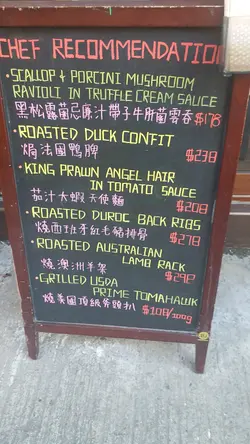 CHEF RECOMMENDATION
• SCALLOP & PORCINI MUSHROOM
RAVIOLI IN TRUFFLE CREAM SAUCE
黑松露菌忌廉汁帶子牛肝菌雲吞 $178
• ROASTED DUCK CONFIT
焗法國鴨脾 $238
• KING PRAWN ANGEL HAIR
IN TOMATO SAUCE
茄汁大蝦天使麵 $208
• ROASTED DUROC BACK RIBS
燒西班牙紅毛豬排骨 $278
• ROASTED AUSTRALIAN
LAMB RACK
燒澳洲羊架 $298
• GRILLED USDA
PRIME TOMAHAWK
燒美國頂級斧頭扒 $108/100g